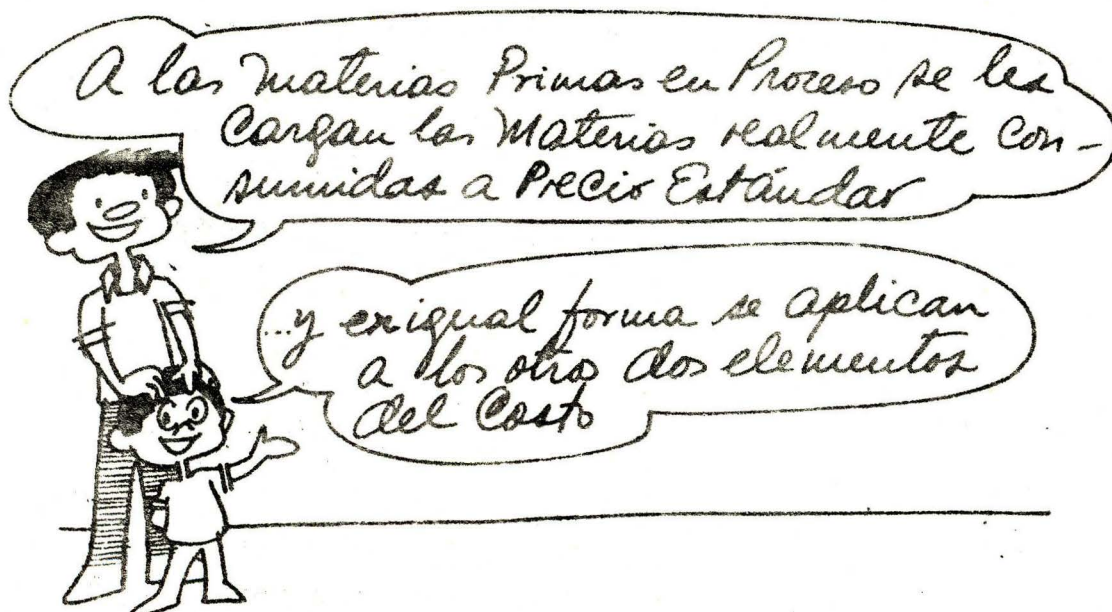 A las Materias Primas en Proceso se les
Cargan las Materias realmente Con-
sumidas a Precio Estándar
...y en igual forma se aplican
a los otros dos elementos
del Costo